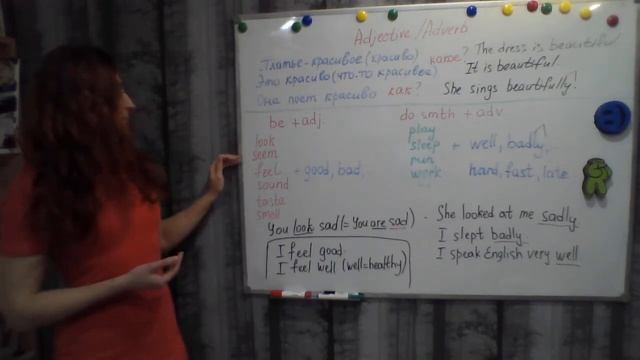 Adjective/Adverb
Платье-красивое (красиво) какое? The dress is beautiful
Это красиво (что-то красивее) It is beautiful.
Она поет красиво как? She sings beautifully.
be + adj.
look
seem
feel - good, bad,
sound
taste
smell
do smth + adv
play
sleep + well, badly,
run
work hard, fast, late
You look sad (= You are sad)
I feel good.
I feel well (well=healthy)
She looked at me sadly
I slept badly
I speak English very well